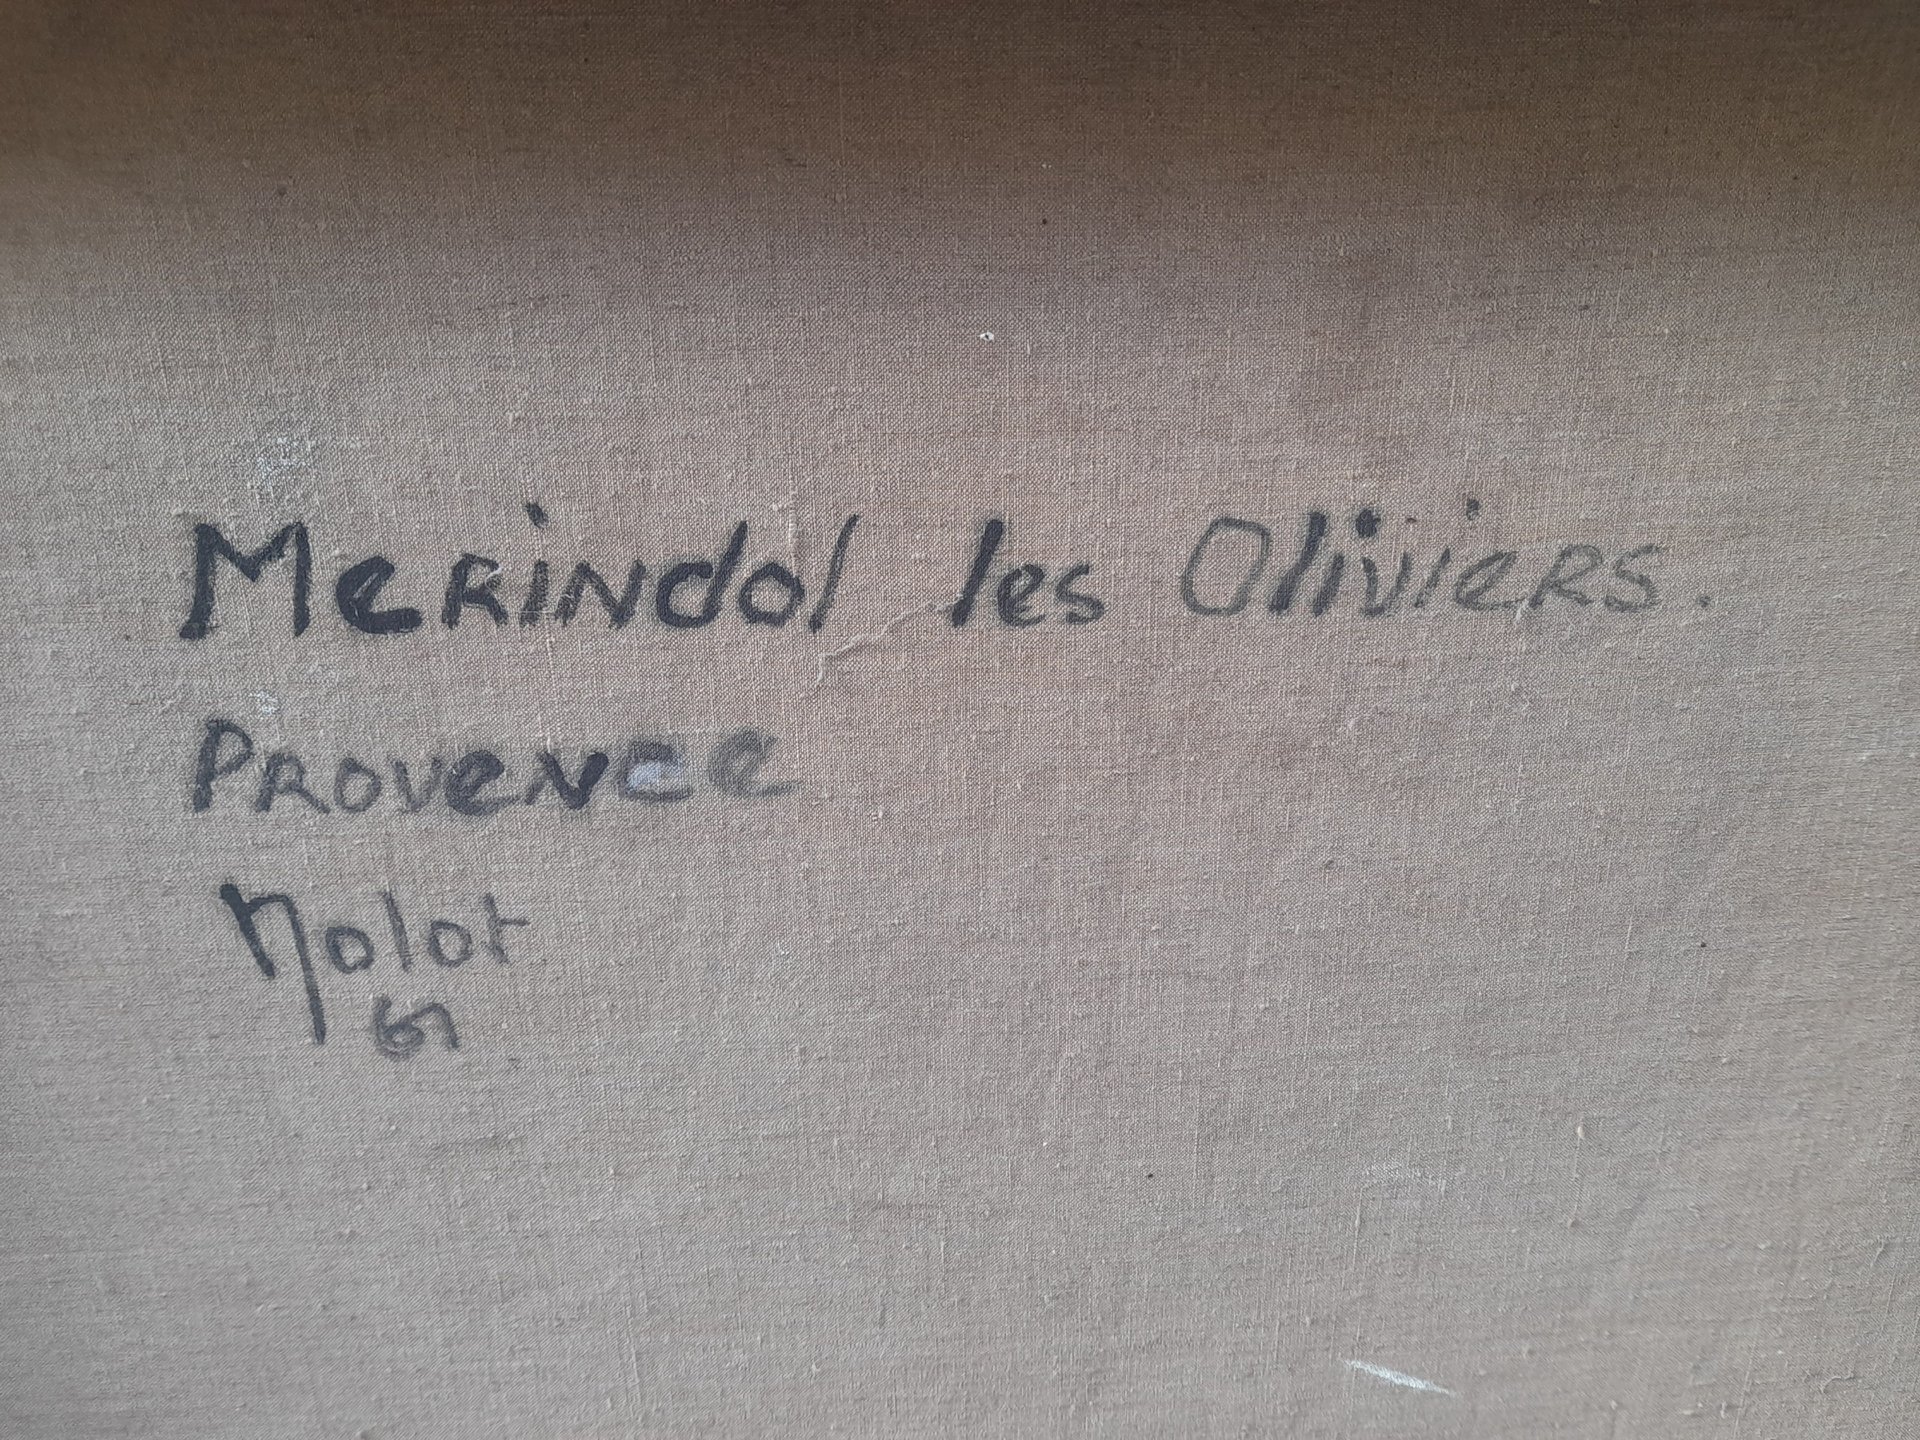 Merindol les Oliviers.
Provence
Nolot
67